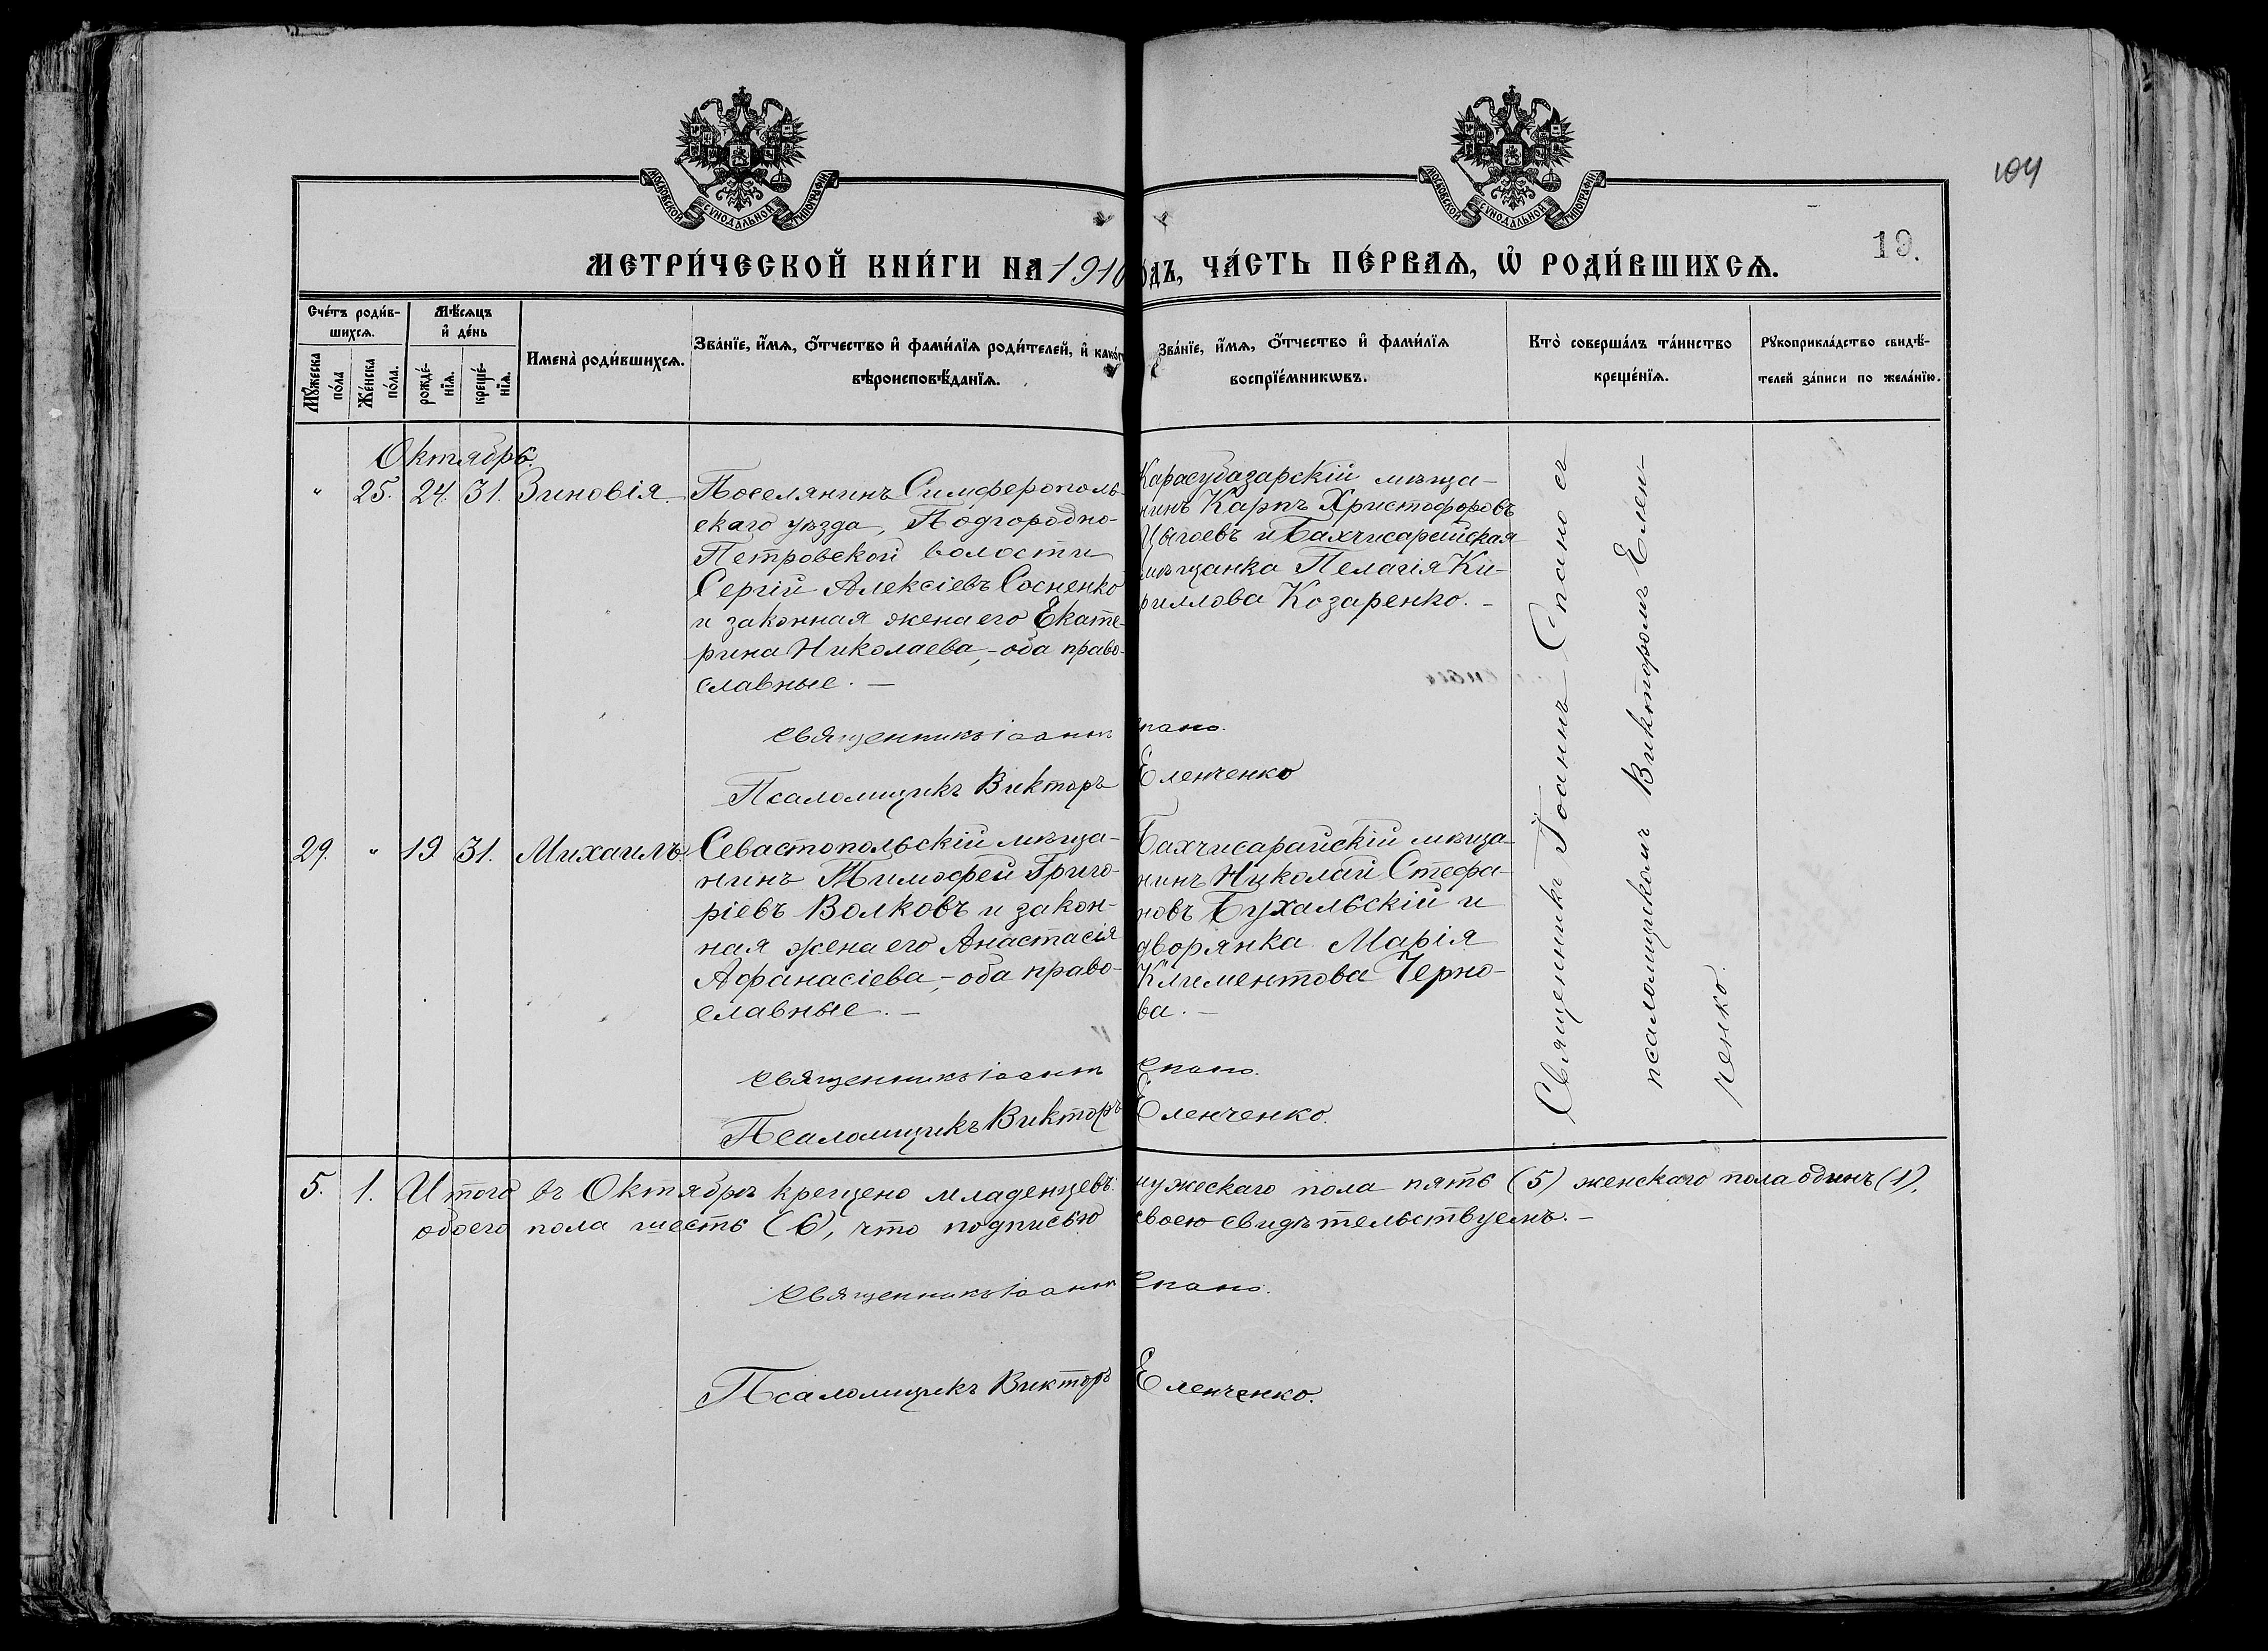 104
МОСКОВСКОЙ СѴНОДАЛЬНОЙ ТИПОГРАФІИ
МОСКОВСКОЙ СѴНОДАЛЬНОЙ ТИПОГРАФІИ
19.
МЕТРИ́ЧЕСКОЙ КНИ́ГИ НА 1910
о́дъ, ЧА́СТЬ ПЕ́РВАѦ, Ѡ҆ РОДИ́ВШИХСѦ.
Сче́тъ роди́в-
шихсѧ.
Мꙋ́жеска
по́ла
Же́нска
по́ла.
Мѣ́сѧцъ
и҆ де́нь
рожде́-
нїѧ.
креще́-
нїѧ.
Имена̀ роди́вшихсѧ.
Зва́нїе, и҆́мѧ, ѻ҆́тчество и҆ фами́лїѧ роди́телей, и҆ како́г
вѣроисповѣ́данїѧ.
Зва́нїе, и҆́мѧ, ѻ҆́тчество и҆ фами́лїѧ
воспрїе́мникѡвъ.
Кто̀ соверша́лъ та́инство
креще́нїѧ.
Рꙋкоприкла́дство свидѣ́-
телей за́писи по жела́нїю.
Октябрь.
" 25. 24. 31. Зиновія.
Поселянинъ Симферополь-
скаго уѣзда, Подгородно-
Петровской волости
Сергій Алексіевъ Сосненко
и законная жена его Екате-
рина Николаева, - оба право-
славные. —
Карасубазарскій мѣща-
нинъ Карпъ Христофоровъ
Цыгоевъ и Бахчисарайская
мѣщанка Пелагія Ки-
риллова Козаренко. -
Священникъ Іоаннъ Спано.
Псаломщикъ Викторъ Еленченко
29. " 19 31. Михаилъ.
Севастопольскій мѣща-
нинъ Тимофей Григо-
ріевъ Волковъ и закон-
ная жена его Анастасія
Афанасіева, - оба право-
славные. —
Бахчисарайскій мѣща-
нинъ Николай Стефа-
новъ Бухальскій и
дворянка Марія
Климентова Черно-
ва. —
Священникъ Іоаннъ Спано.
Псаломщикъ Викторъ Еленченко.
Священникъ Іоаннъ Спано съ
псаломщикомъ Викторомъ Елен-
ченко.
5. 1. Итого въ Октябрѣ крещено младенцевъ: мужескаго пола пять (5) женскаго пола одинъ (1),
обоего пола шесть (6), что подписью своею свидѣтельствуемъ. —
Священникъ Іоаннъ Спано.
Псаломщикъ Викторъ Еленченко.